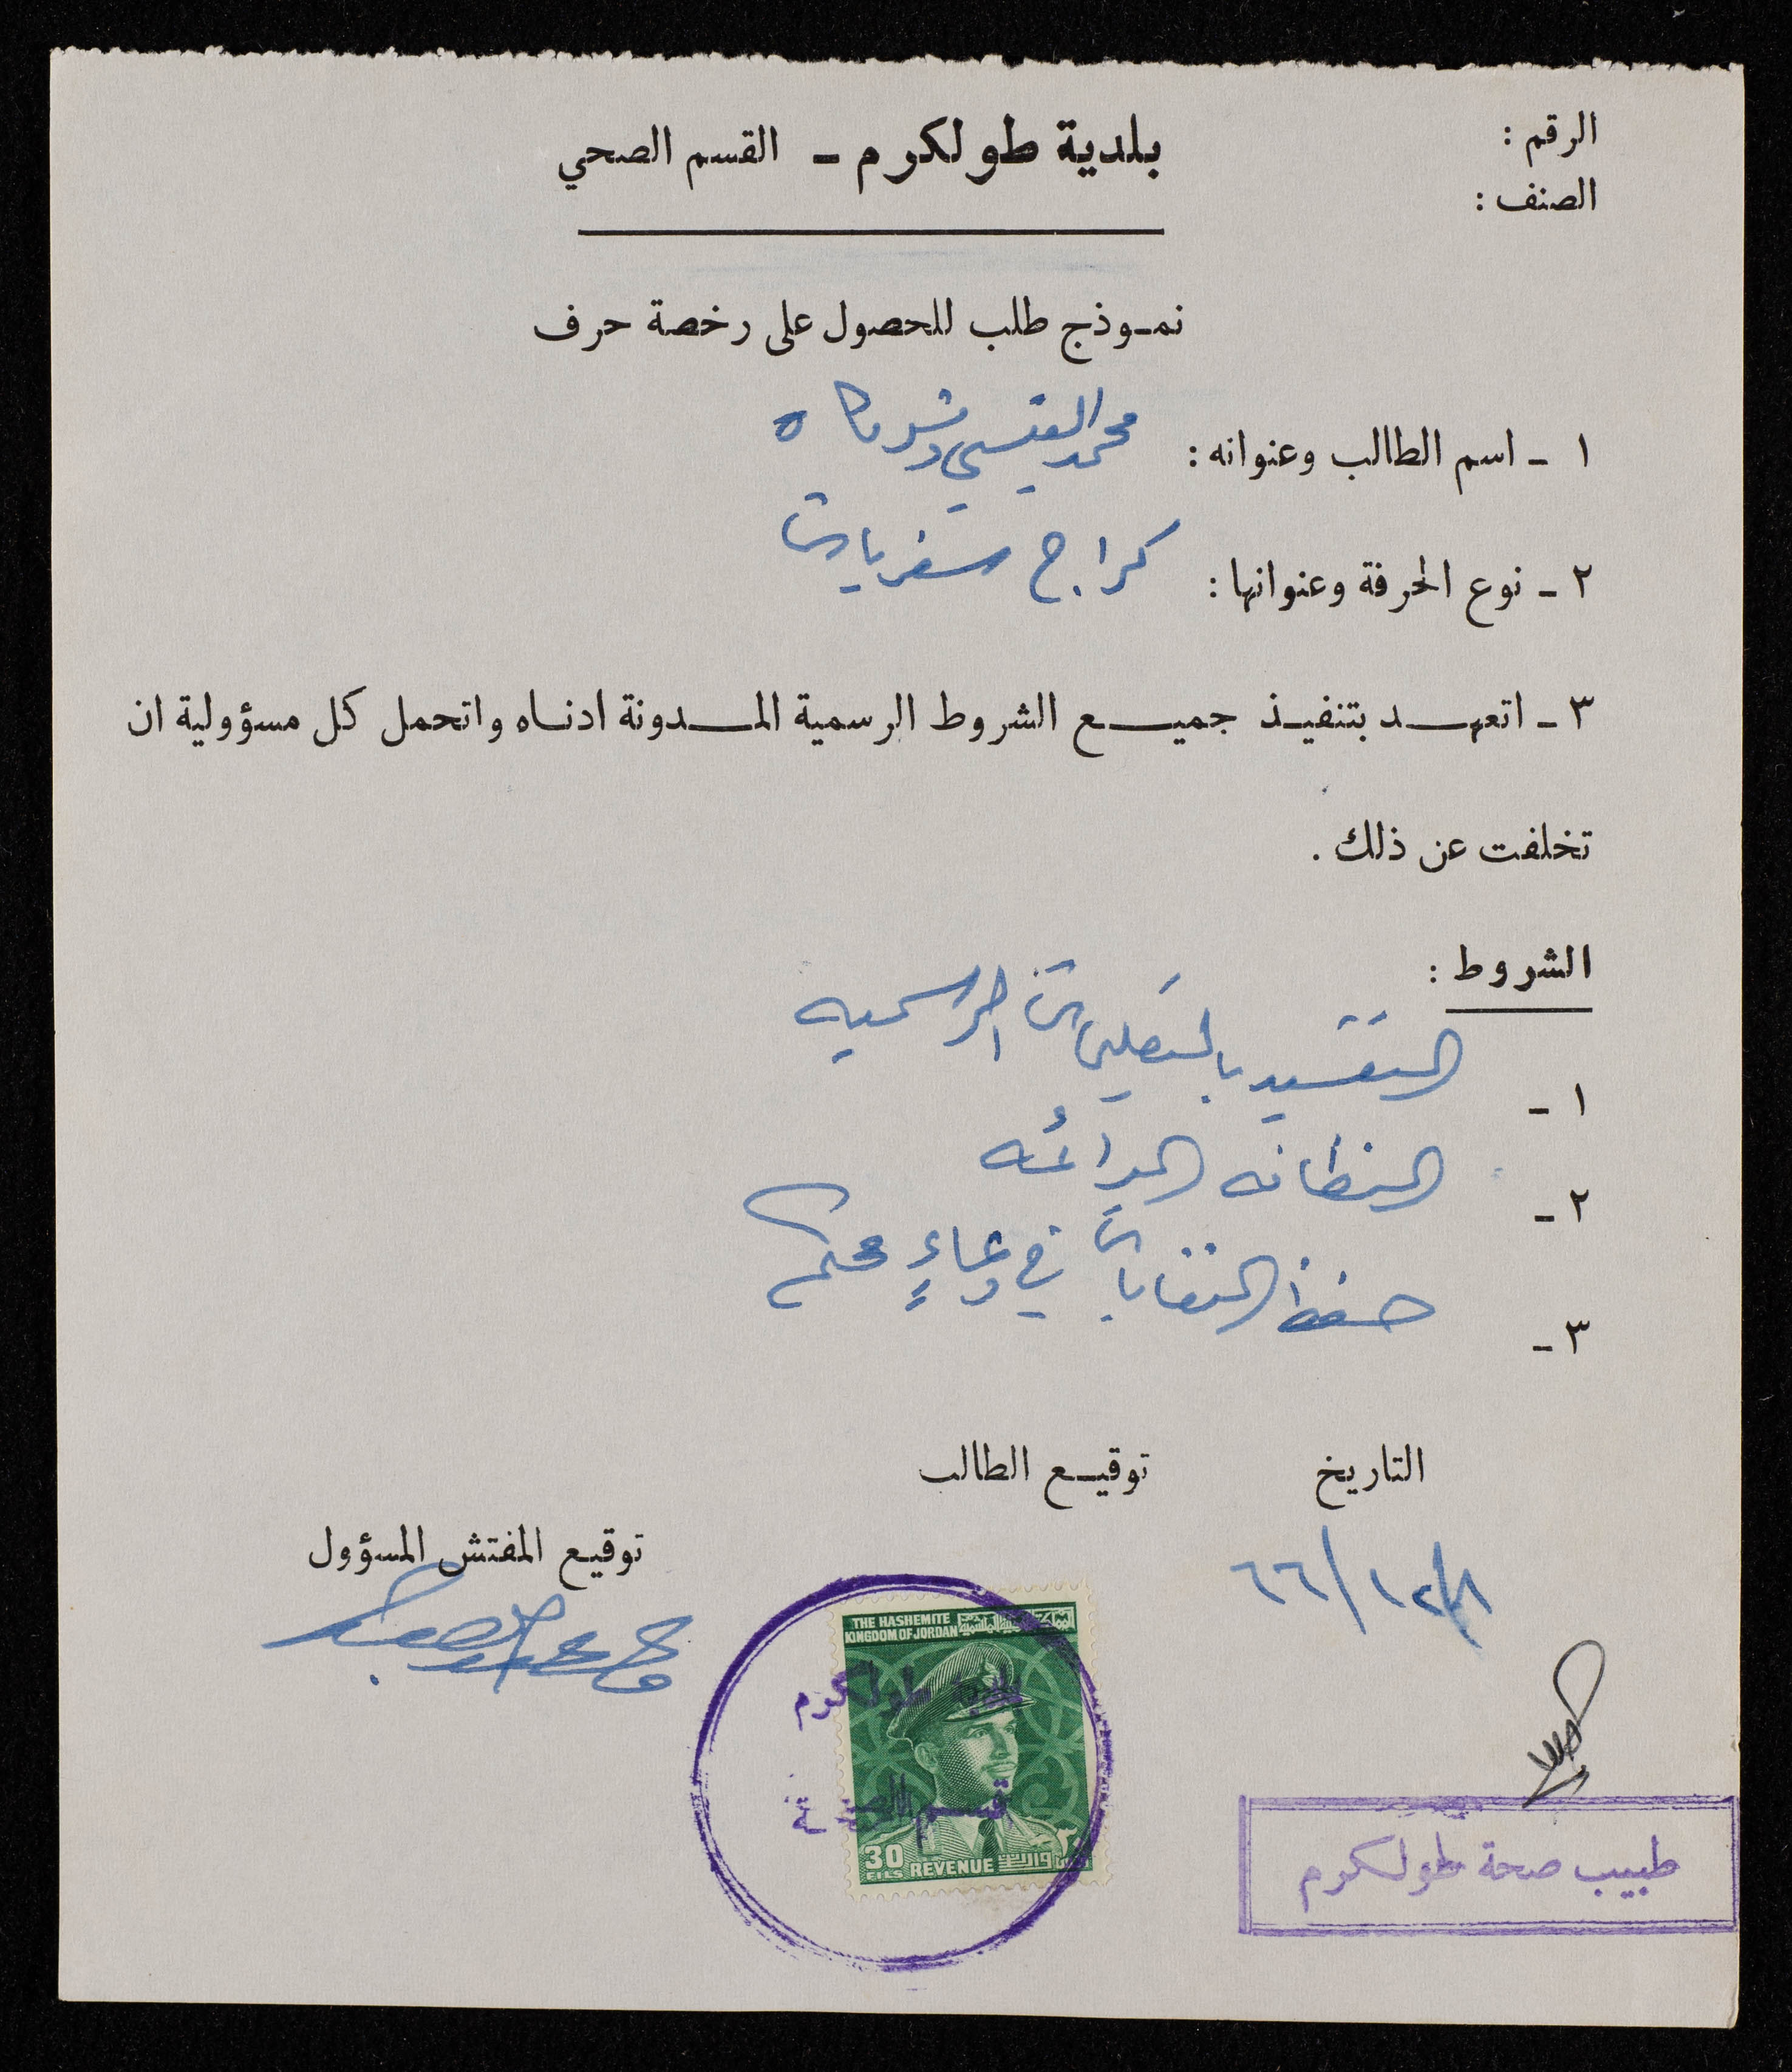 الرقم :
الصنف :
بلدية طولكرم - القسم الصحي
نموذج طلب للحصول على رخصة حرف
١ - اسم الطالب وعنوانه : محمد القيسي وشركاه
٢ - نوع الحرفة وعنوانها : كراج سفريات
٣ - اتعهد بتنفيذ جميع الشروط الرسمية المدونة ادناه واتحمل كل مسؤولية ان
تخلفت عن ذلك .
الشروط :
١ - التقيد بالتعليمات الرسميه
٢ - النظافه الدائمه
٣ - حفظ النفايات في وعاءٍ محكم
التاريخ
توقيع الطالب
توقيع المفتش المسؤول
٦٦/١٢/
THE HASHEMITE
KINGDOM OF JORDAN
المملكة الاردنية الهاشمية
بلدية طولكرم
قسم الصحة
30
FILS
REVENUE
٣٠
طبيب صحة طولكرم